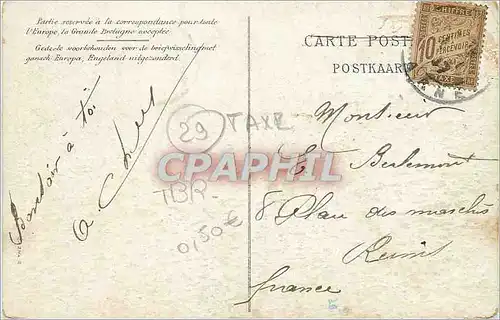 Partie réservée à la correspondance pour toute
l'Europe, la Grande Bretagne exceptée
Gedeelte voorbehouden voor de briefwisseling met
gansch Europa, Engeland uitgezonderd.
Bonsoir à toi
CARTE POST
POSTKAAR
CHIFFRE
10 CENTIMES
A PERCEVOIR
TAXE
29 TAXE
CPAPHIL
TBR
0,50€
Monsieur
E. Berlemont
8 Place des marchés
Reims
France